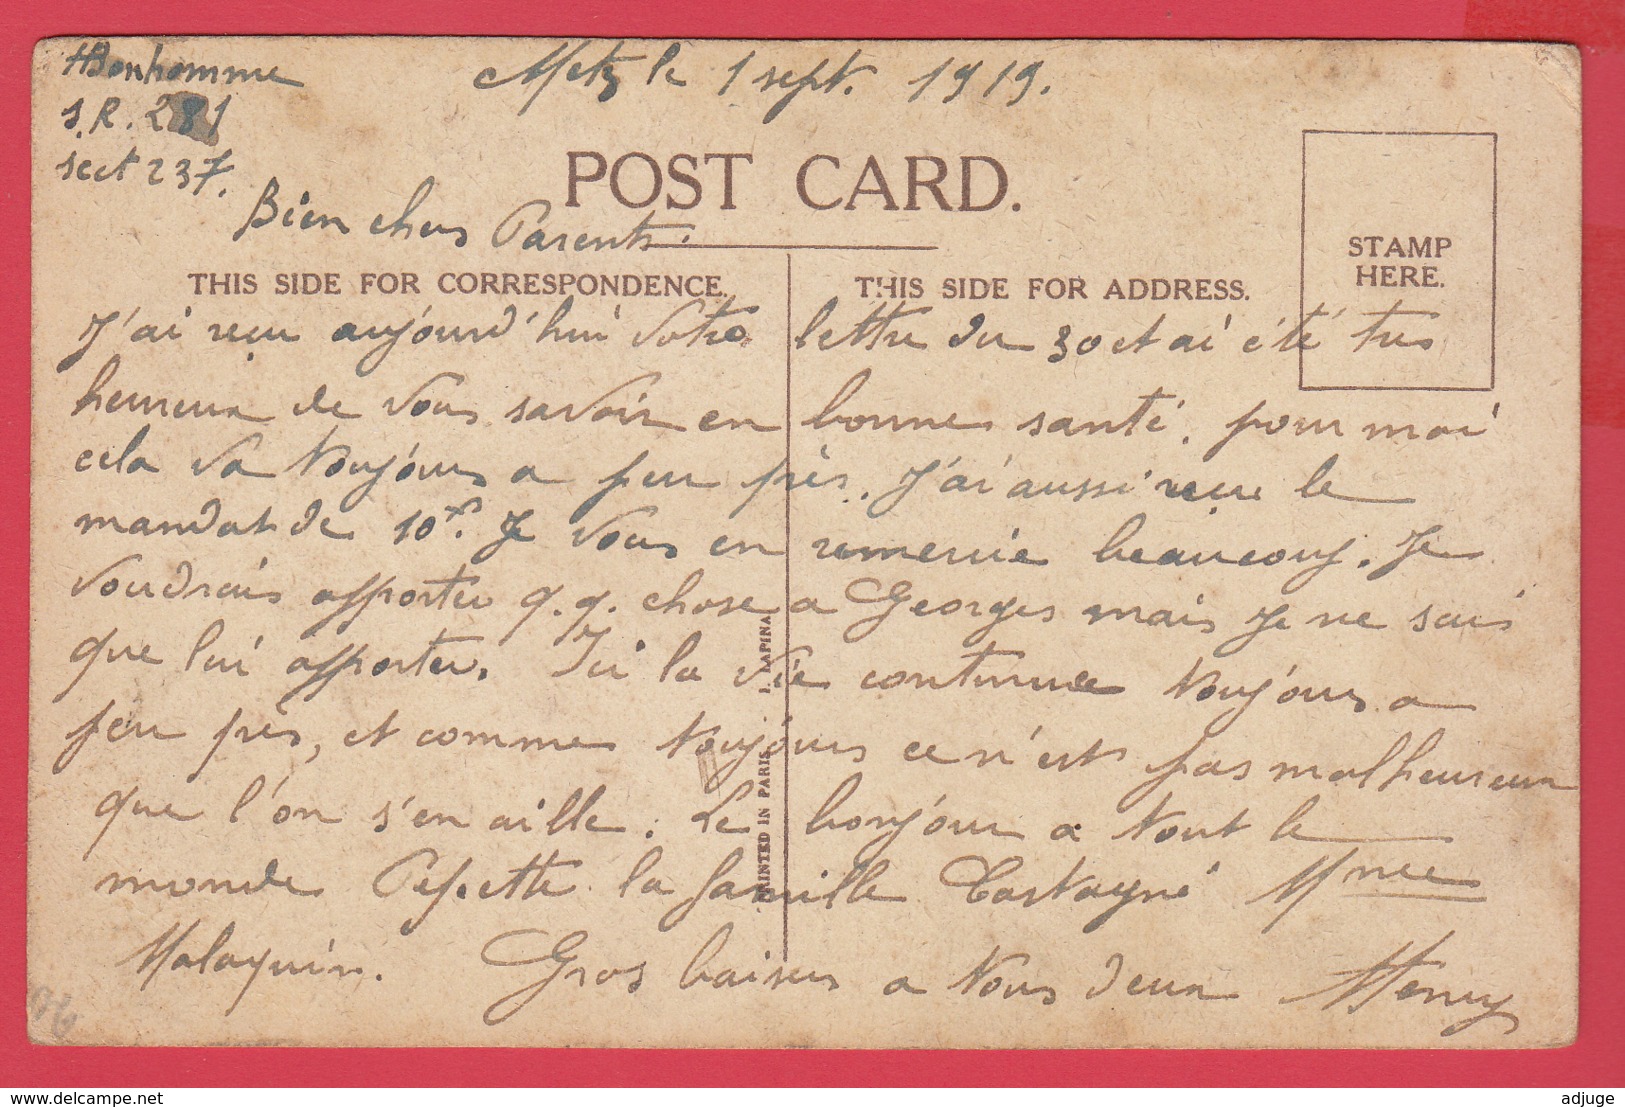 HBonhomme
S.R. 281
sect 237.
Metz le 1 sept. 1919.
POST CARD.
Bien chers Parents.
STAMP
HERE.
THIS SIDE FOR CORRESPONDENCE.
THIS SIDE FOR ADDRESS.
J'ai reçu aujourd'hui votre lettre du 30 et ai été très
heureux de vous savoir en bonne santé, pour moi
cela va toujours a peu près. J'ai aussi reçu le
mandat de 10f. Je vous en remercie beaucoup. Je
voudrais apporter q.q. chose a Georges mais je ne sais
que lui apporter. Ici la vie continue toujours a
peu près, et comme toujours ce n'est pas malheureux
que l'on s'en aille. Le bonjour a tout le
monde Pepette la famille Castagné Mme
Malaquin. Gros baisers a tous deux Henry
PRINTED IN PARIS. I. LAPINA
delcampe.net
adjuge